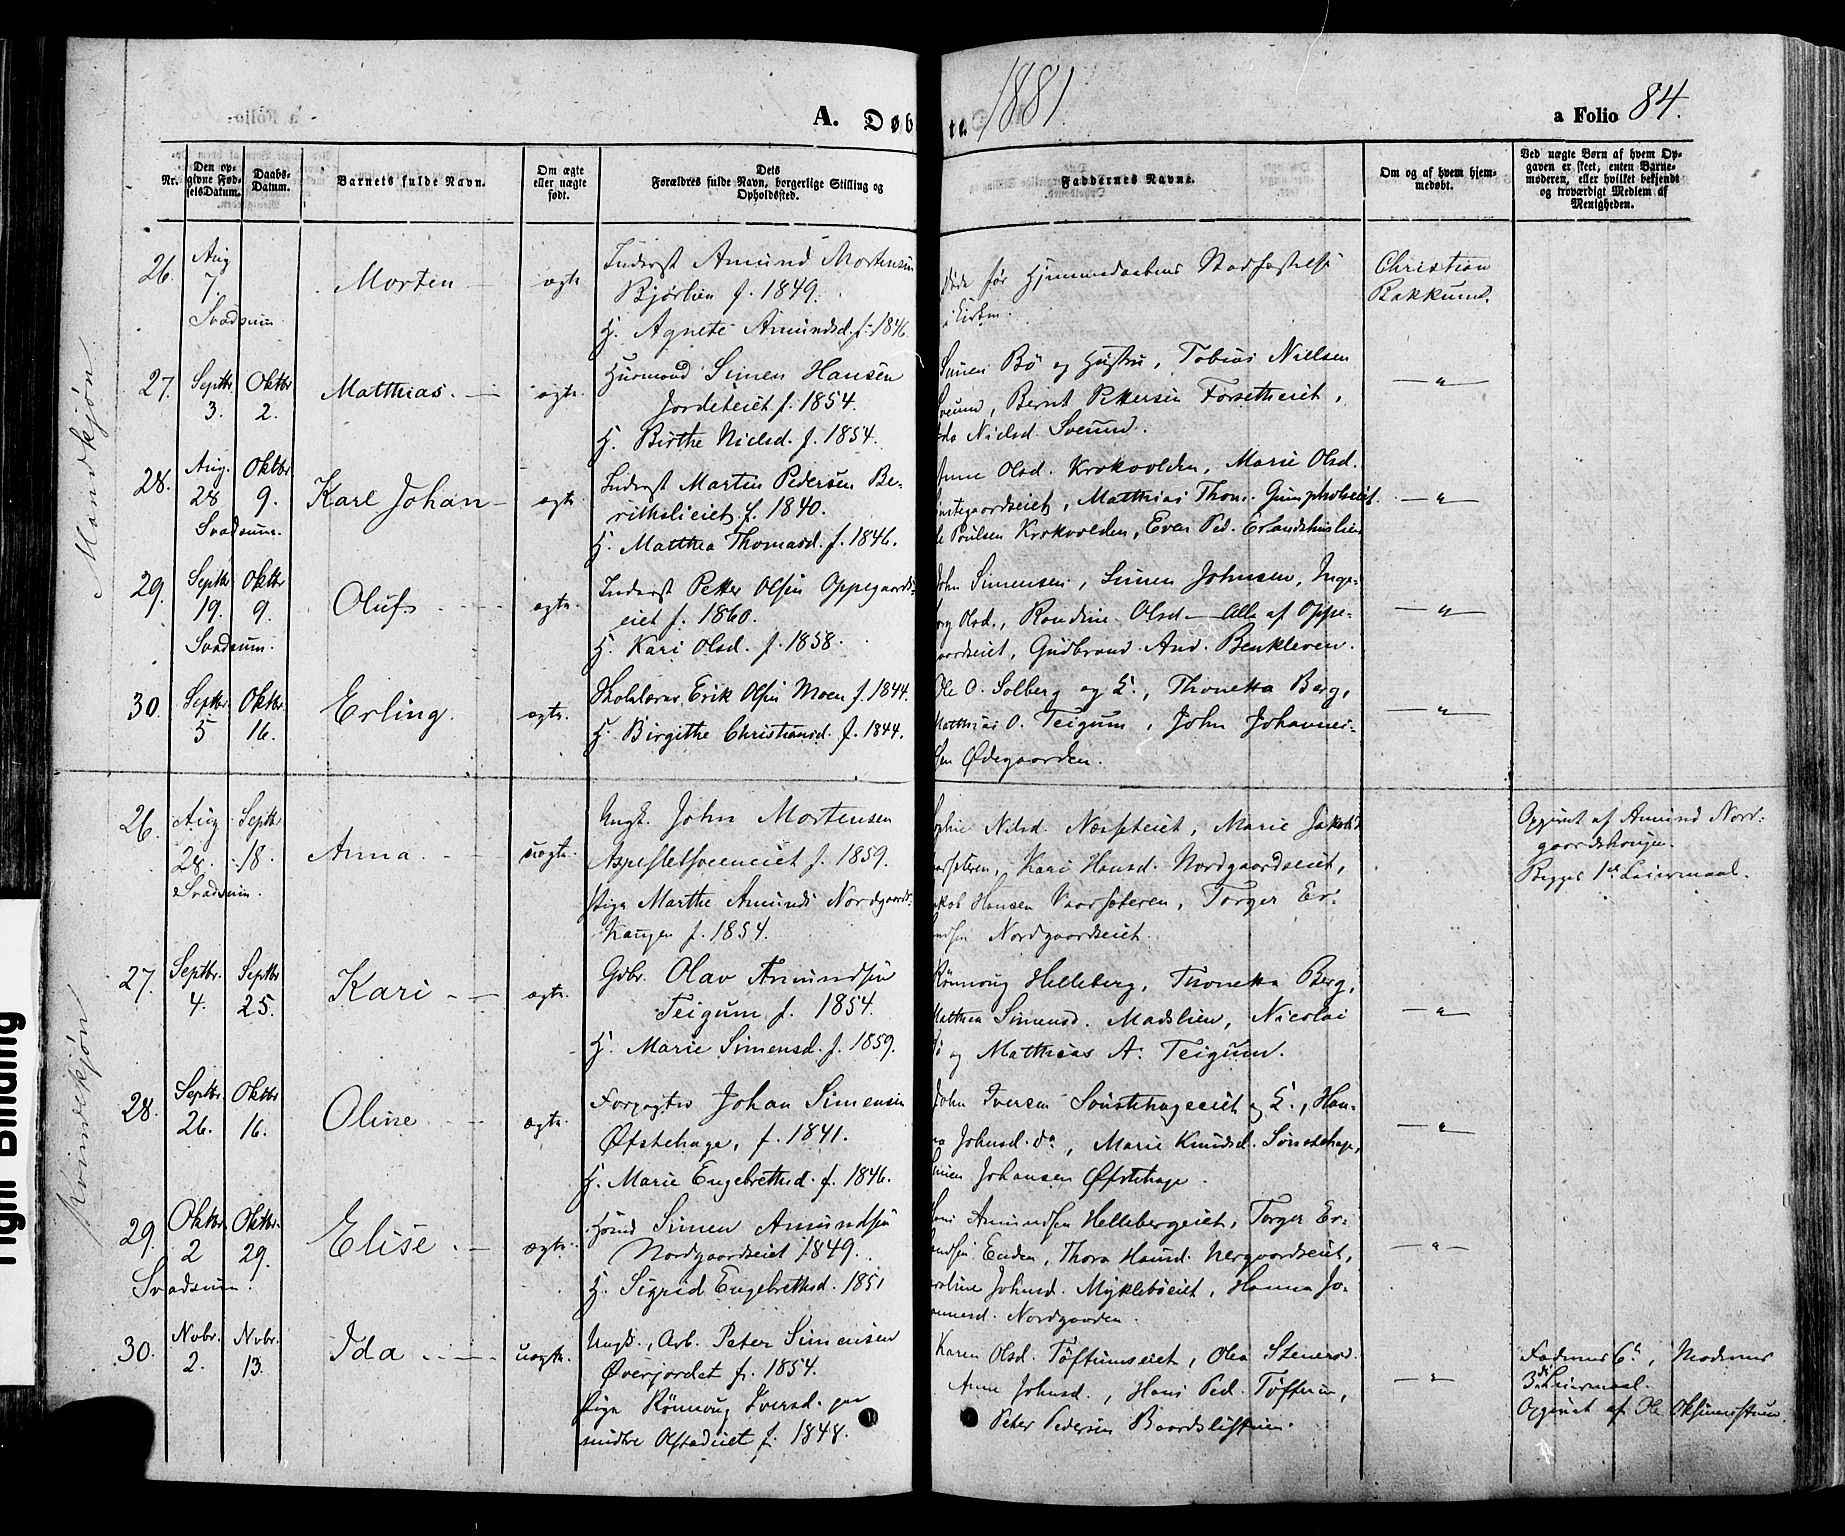 A. Døb
te 1881
a Folio 84.
Nr.
Den opgivne Fødselsdatum.
Daabs-Datum.
Barnets fulde Navn.
Om ægte eller uægte født.
Dets Forældres fulde Navn, borgerlige Stilling og Opholdssted.
Faddernes Navne.
Om og af hvem hjemmedøbt.
Ved uægte Børn af hvem Opgaven er skeet, enten Barnemoderen, eller hvilket bekjendt og troværdigt Medlem af Menigheden.
Mandkjøn
26. Aug 7 Svadsum Morten ægte
Inderst Amund Mortensen
Bjørlien f. 1849.
H. Agnete Amundsd. f. 1846
Døde før Hjemmedaabens Stadfæstelse
i Kirken.
Christian
Bakkum.
27. Septbr 3. Oktbr 2. Matthias. ægte
Huusmand Simen Hansen
Jordeteiet f. 1854.
H. Birthe Nielsd. f. 1854.
Simen Bø og Hustru, Tobias Nielsen
Sveum, Bernt Pettersen Forsetheiet,
Nielsd. Sveum.
— " —
28. Aug. 28 Svadsum. Oktbr 9. Karl Johan ægte
Inderst Martin Pedersen Be-
rithslieiet f. 1840.
H. Matthea Thomasd. f. 1846.
Anne Olsd. Krokvolden, Marie Olsd.
Matthias Thom. Gumpholseiet.
Poulsen Krokvolden, Even Ped. Erlandhuslien
— " —
29. Septbr 19. Svadsum. Oktbr 9. Oluf ægte
Inderst Petter Olsen Oppegaards-
eiet f. 1860.
H. Kari Olsd. f. 1858.
John Simensen, Simen Johnsen, Inge-
borg Olsd., Rondine Olsd — Alle af Oppe-
gaardseiet, Gudbrand And. Benkleven.
— " —
30. Septbr. 5 Oktbr. 16. Erling. ægte
Skolelærer Erik Olsen Moen f. 1844.
H. Birgithe Christiansd. f. 1844.
Ole O. Solberg og H., Thonetta Berg,
Matthias O. Teigum, John Johannes-
sen Ødegaarden.
— " —
Kvindekjøn
26. Aug 28. Svadsum Septbr 18. Anna uægte
Ungk. John Mortensen
f. 1859.
Pige Marthe Amunds Nordgaards-
haugen f. 1854.
Nilsd. Næsseteiet, Marie Jakobsd
Kari Hansd. Nordgaardseiet,
Jakob Hansen Vaarseteren, Torger Er-
landsen Nordgaardseiet.
Opgivet af Amund Nord-
gaardshougen
Begges 1ste Leiermaal.
27. Septbr. 4. Septbr 25. Kari ægte
Gdbr. Olav Amundsen
Teigum f. 1854.
H. Marie Simensd. f. 1859.
Rønnoug Helleberg, Thonetta Berg,
Matthea Simensd. Madslien, Nicolai
Bø og Matthias A. Teigum.
— " —
28. Septbr 26. Oktbr 16. Oline ægte
Forpagter Johan Simensen
Øfstehage, f. 1841.
H. Marie Engebrethsd. f. 1846.
John Iversen og H., Han-
na Johnsd. do, Marie Knudsd.
Simen Johansen Øfstehage.
— " —
29. Oktbr. 2 Svadsum Oktbr. 29. Elise ægte
Hsmd Simen Amundsen
Nordgaardseiet 1849.
H. Sigrid Engebrethsd. 1851
Hans Amundsen Hellebergeiet, Torger Er-
landsen Enden, Thora Hansd. Nergaardseiet,
Karoline Johnsd. Mykleboeiet, Hanna Jo-
hannesd. Nordgaarden.
— " —
30. Novbr. 2. Novbr. 13. Ida uægte
Ungk., Arb. Peter Simensen
Øverjordet f. 1854.
Pige Rønnoug Iversd. paa
nedre Olstadeiet f. 1848.
Karen Olsd. Tøftumseiet, Olea Stenersd.
Anne Johnsd., Hans Ped. Tøftum,
Peter Pedersen Baardslistuen.
— " —
Faderens 6te, Moderens
3die Leiermaal.
Opgivet af Ole
Tight Binding